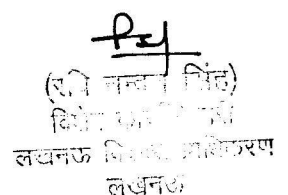 (रवि नन्दन सिंह)
विशेष
लखनऊ विकास प्राधिकरण
लखनऊ